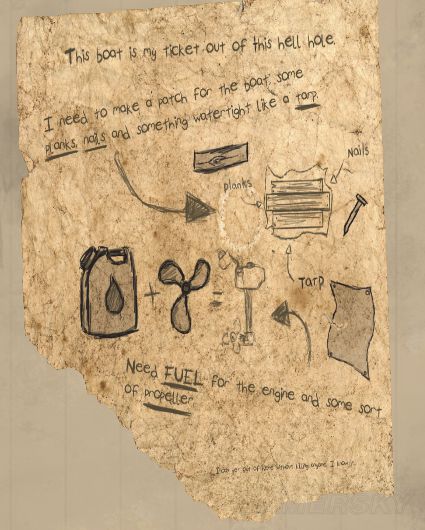 This boat is my ticket out of this hell hole.
I need to make a patch for the boat, some
planks, nails and something watertight like a tarp.
Nails
planks
Tarp
Need FUEL for the engine and some sort
of propeller
out of here without killing anyone. I